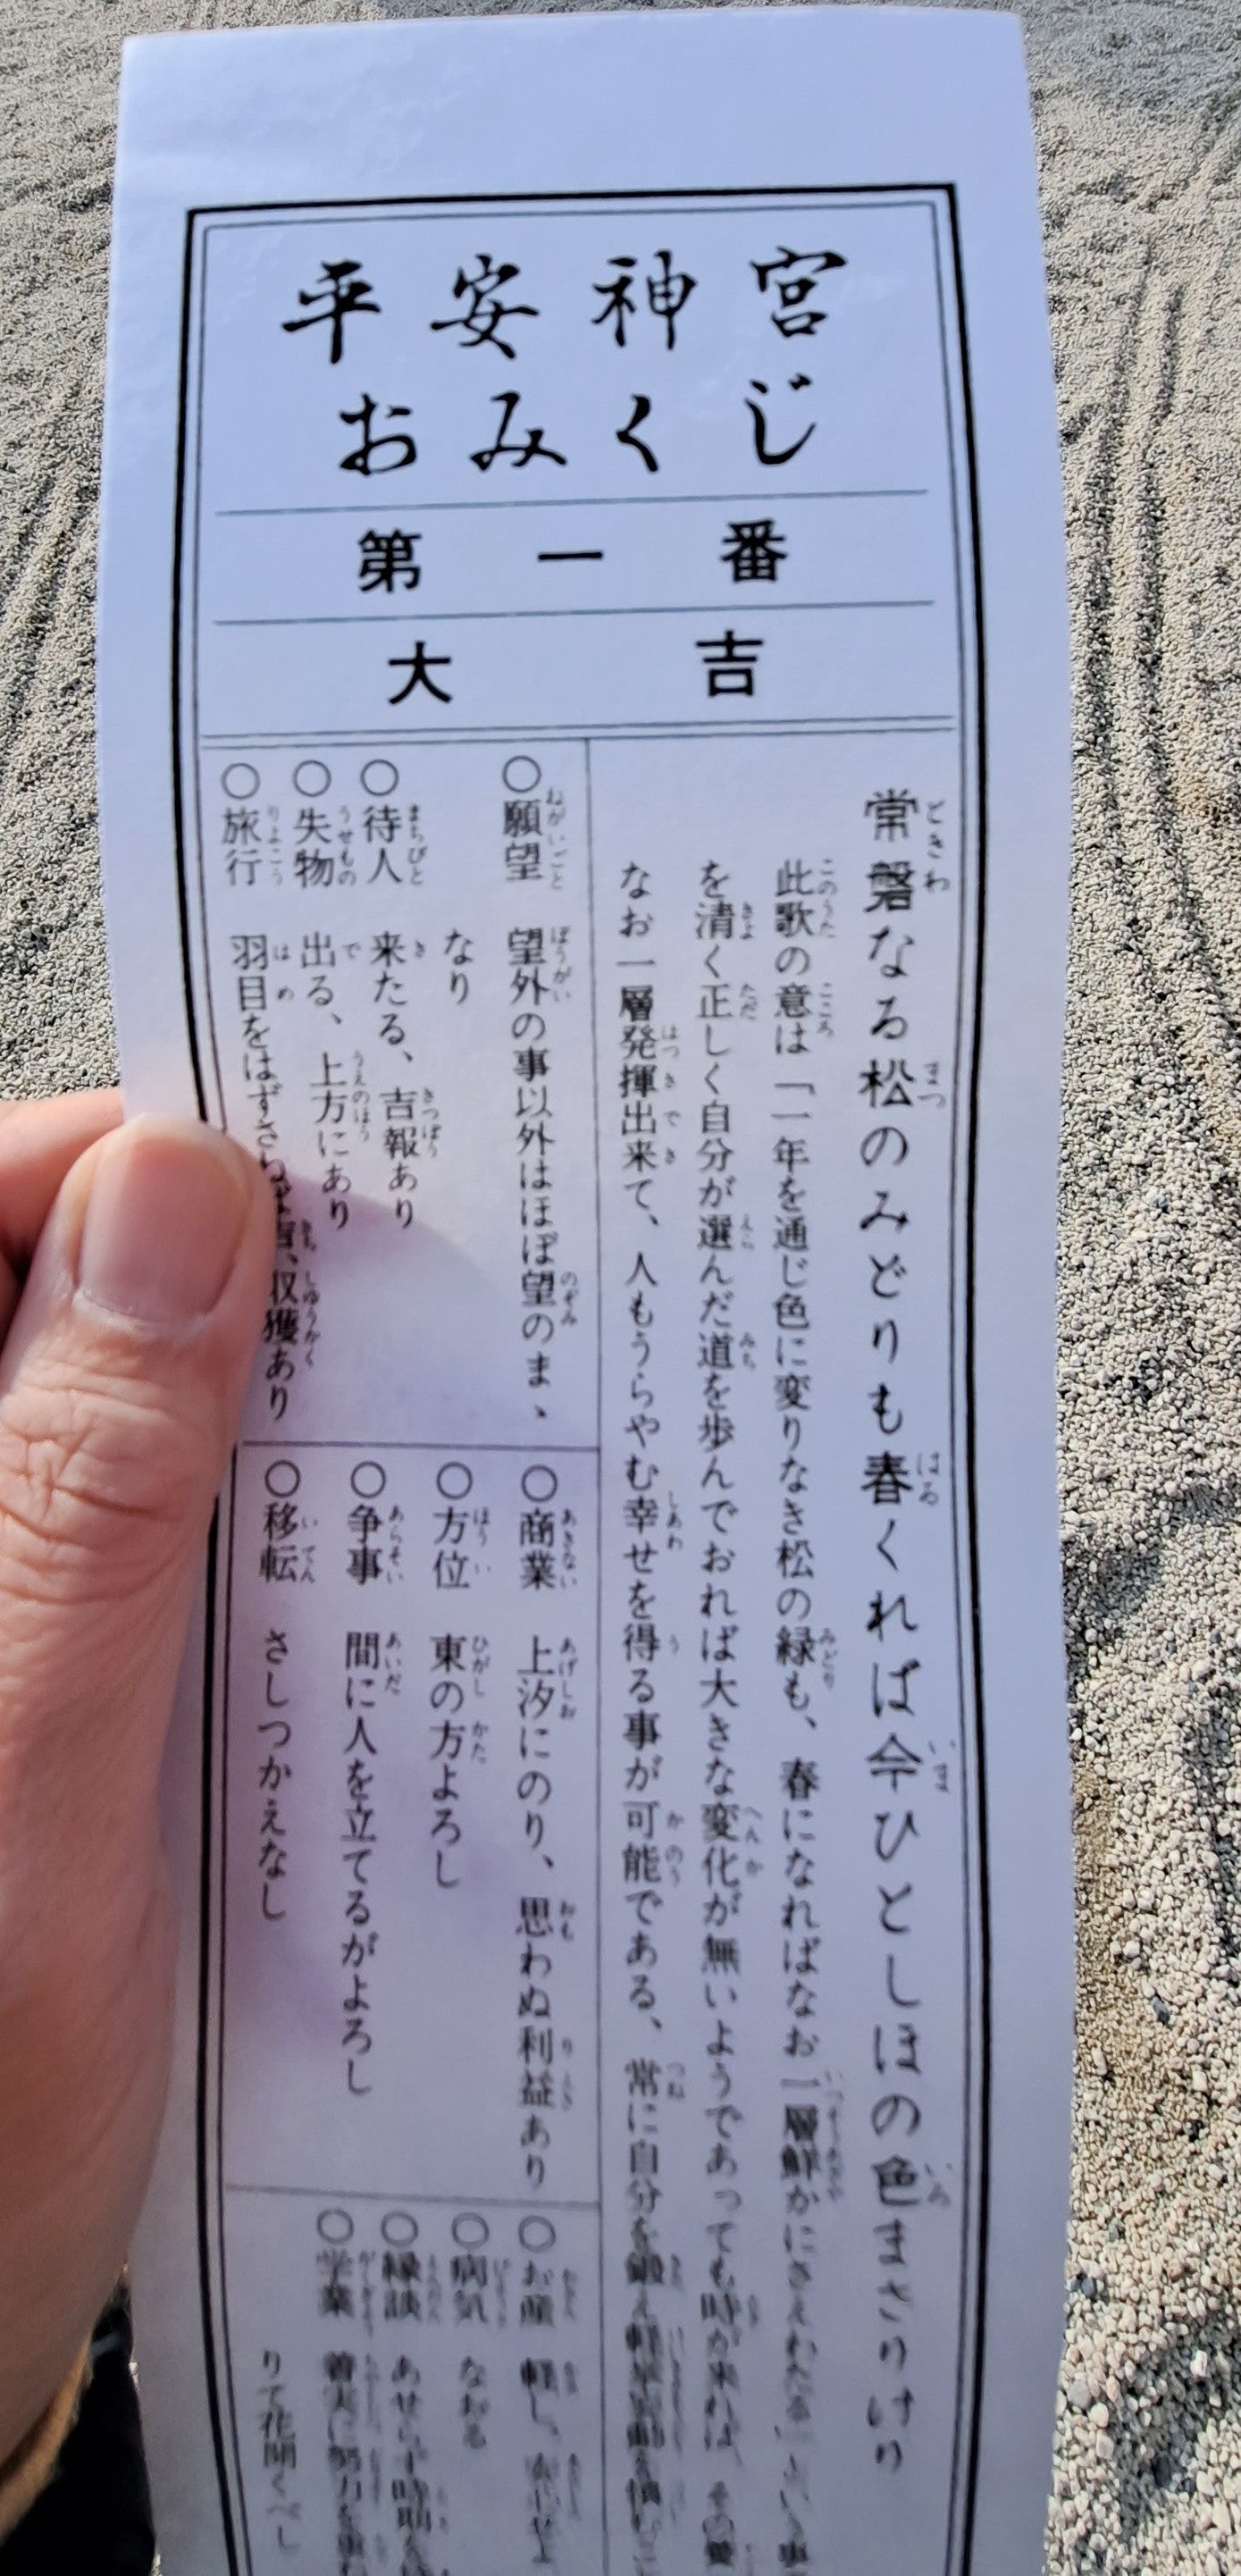 平安神宮
おみくじ
第一番
大吉
常磐なる松のみどりも春くれば今ひとしほの色まさりけり
此歌の意は「一年を通じ色に変りなき松の緑も、春になればなお一層鮮かにさえわたる
を清く正しく自分が選んだ道を歩んでおれば大きな変化が無いようであっても時が来れば、その
なお一層発揮出来て、人もうらやむ幸せを得る事が可能である、常に自分を鍛え軽挙妄動を慎む
○願望 望外の事以外はほぼ望のまゝ
なり
○待人 来たる、吉報あり
○失物 出る、上方にあり
○旅行 羽目をはずさ 吉、収獲あり
○商業 上汐にのり、思わぬ利益あり
○方位 東の方よろし
○争事 間に人を立てるがよろし
○移転 さしつかえなし
○お産 軽し、
○病気 なおる
○縁談 あせらず時期を
○学業 着実に努力を
りて花開くべし